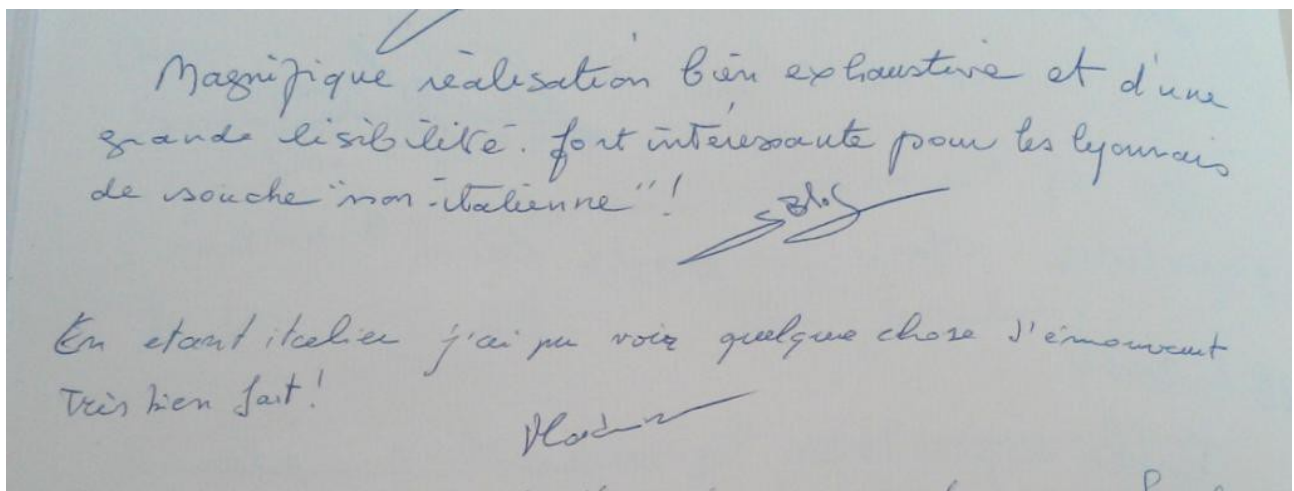 Magnifique réalisation bien exhaustive et d'une
grande lisibilité. fort intéressante pour les lyonnais
de souche "non-italienne"!
En etant italien j'ai pu voir quelque chose d'émouvant
Très bien fait!